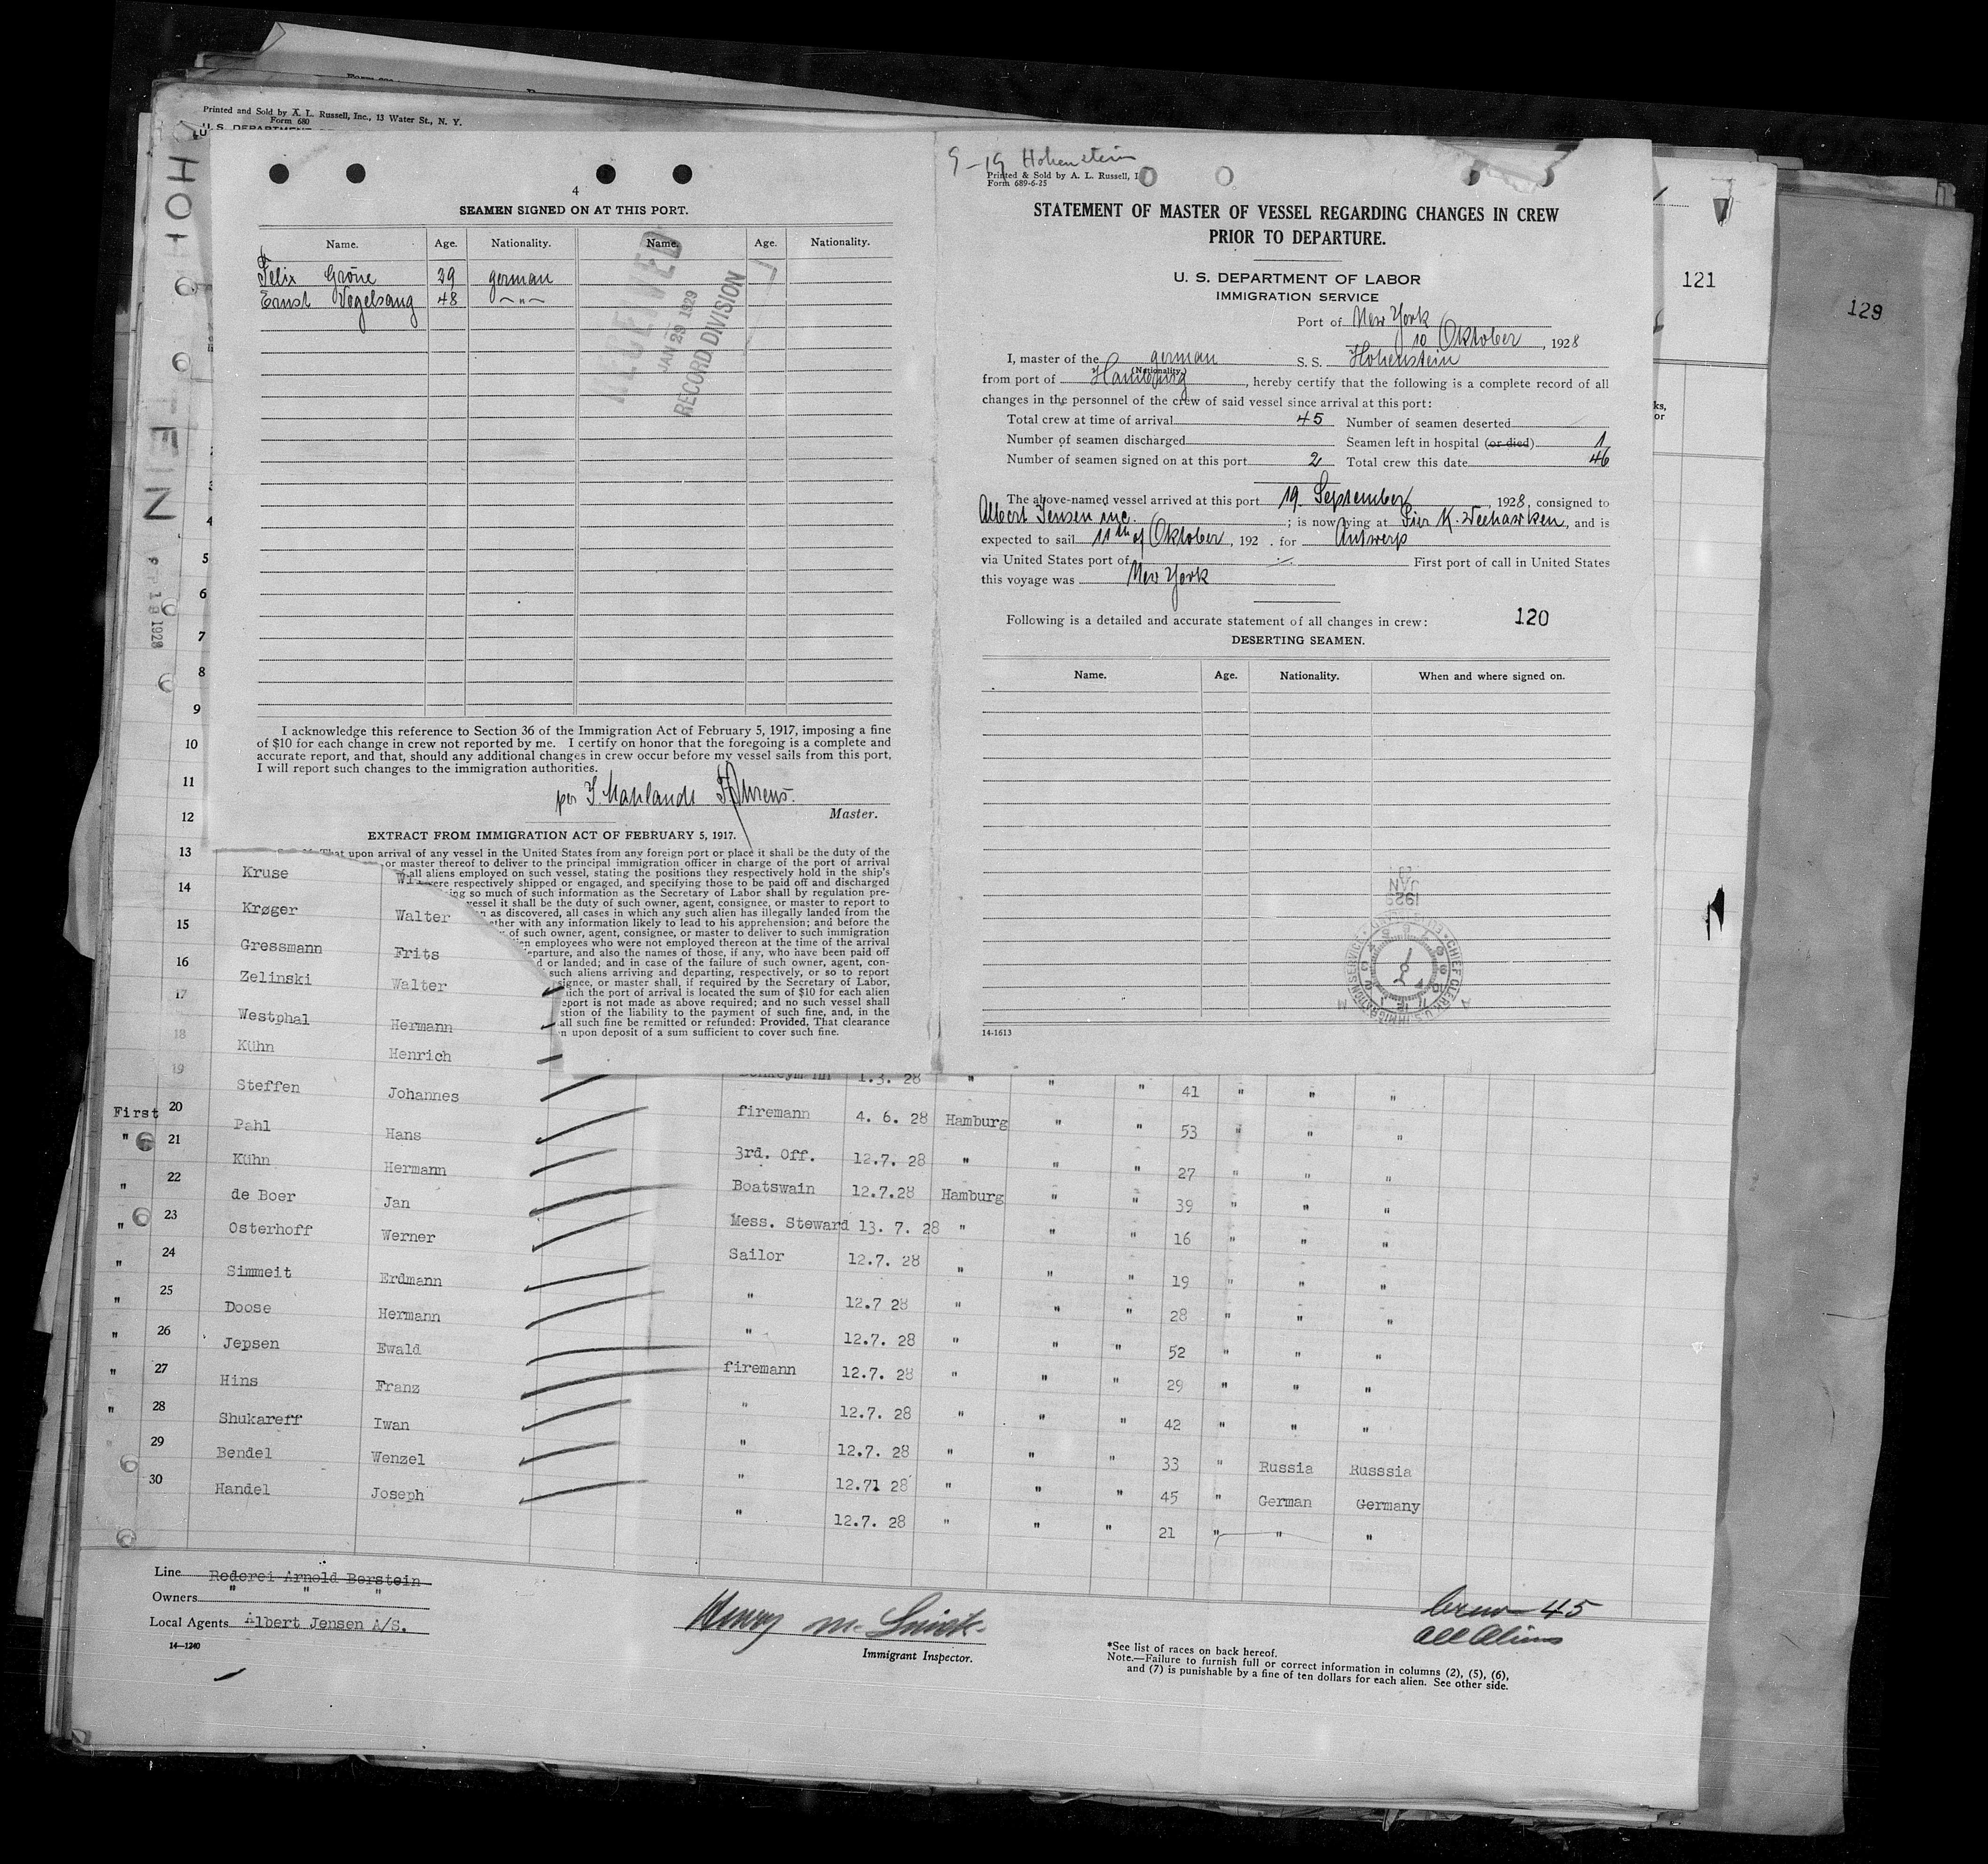 Printed and Sold by A. L. Russell, Inc., 13 Water St., N. Y.
Form 680
4
SEAMEN SIGNED ON AT THIS PORT.
Name. Age. Nationality. Name. Age. Nationality.
Felix Gröne 29 german
Ernst Vogelsang 48 〃
RECEIVED
JAN 29 1929
RECORD DIVISION
I acknowledge this reference to Section 36 of the Immigration Act of February 5, 1917, imposing a fine
of $10 for each change in crew not reported by me. I certify on honor that the foregoing is a complete and
accurate report, and that, should any additional changes in crew occur before my vessel sails from this port,
I will report such changes to the immigration authorities.
per
Master.
EXTRACT FROM IMMIGRATION ACT OF FEBRUARY 5, 1917.
That upon arrival of any vessel in the United States from any foreign port or place it shall be the duty of the
or master thereof to deliver to the principal immigration officer in charge of the port of arrival
all aliens employed on such vessel, stating the positions they respectively hold in the ship's
were respectively shipped or engaged, and specifying those to be paid off and discharged
ing so much of such information as the Secretary of Labor shall by regulation pre-
vessel it shall be the duty of such owner, agent, consignee, or master to report to
n as discovered, all cases in which any such alien has illegally landed from the
ether with any information likely to lead to his apprehension; and before the
of such owner, agent, consignee, or master to deliver to such immigration
ien employees who were not employed thereon at the time of the arrival
eparture, and also the names of those, if any, who have been paid off
d or landed; and in case of the failure of such owner, agent, con-
such aliens arriving and departing, respectively, or so to report
signee, or master shall, if required by the Secretary of Labor,
ich the port of arrival is located the sum of $10 for each alien
eport is not made as above required; and no such vessel shall
stion of the liability to the payment of such fine, and, in the
all such fine be remitted or refunded: Provided, That clearance
n upon deposit of a sum sufficient to cover such fine.
9-19 Hohenstein
Printed & Sold by A. L. Russell, I
Form 689-6-25
STATEMENT OF MASTER OF VESSEL REGARDING CHANGES IN CREW
PRIOR TO DEPARTURE.
U. S. DEPARTMENT OF LABOR
IMMIGRATION SERVICE
Port of New York
10 Oktober, 1928
I, master of the german S. S. Hohenstein
(Nationality)
from port of Hamburg, hereby certify that the following is a complete record of all
changes in the personnel of the crew of said vessel since arrival at this port:
Total crew at time of arrival 45 Number of seamen deserted
Number of seamen discharged Seamen left in hospital (or died) 1
Number of seamen signed on at this port 2 Total crew this date 46
The above-named vessel arrived at this port 19. September, 1928, consigned to
Albert Jensen inc. ; is now lying at Pier K. Weehawken, and is
expected to sail 11th of Oktober, 192 . for Antwerp
via United States port of First port of call in United States
this voyage was New York
Following is a detailed and accurate statement of all changes in crew: 120
DESERTING SEAMEN.
Name. Age. Nationality. When and where signed on.
1929
JAN
CHIEF CLERK U.S. IMMIGRATION SERVICE
14-1613
121
129
HOHE
TEIN
SEP 19 1928
4
5
6
7
8
9
10
11
12
13 Kruse
14 Krøger Walter
15 Gressmann Frits
16 Zelinski Walter
17 Westphal Hermann
18 Kühn Henrich
19 Steffen Johannes 1.3. 28 " " " 41 " " "
First 20 Pahl Hans firemann 4. 6. 28 Hamburg " " 53 " " "
" 21 Kühn Hermann 3rd. Off. 12.7. 28 " " " 27 " " "
" 22 de Boer Jan Boatswain 12.7.28 Hamburg " " 39 " " "
" 23 Osterhoff Werner Mess. Steward 13. 7. 28 " " " 16 " " "
" 24 Simmeit Erdmann Sailor 12.7. 28 " " " 19 " " "
" 25 Doose Hermann " 12.7 28 " " " 28 " " "
" 26 Jepsen Ewald " 12.7. 28 " " " 52 " " "
" 27 Hins Franz firemann 12.7. 28 " " " 29 " " "
" 28 Shukareff Iwan " 12.7. 28 " " " 42 " " "
29 Bendel Wenzel " 12.7. 28 " " " 33 " Russia Russsia
30 Handel Joseph " 12.71 28 " " " 45 " German Germany
" 12.7. 28 " " " 21 " " "
Line Rederei Arnold Berstein
Owners " " "
Local Agents Albert Jensen A/S.
14—1240
Immigrant Inspector.
Crew 45
all Aliens
*See list of races on back hereof.
Note.—Failure to furnish full or correct information in columns (2), (5), (6),
and (7) is punishable by a fine of ten dollars for each alien. See other side.